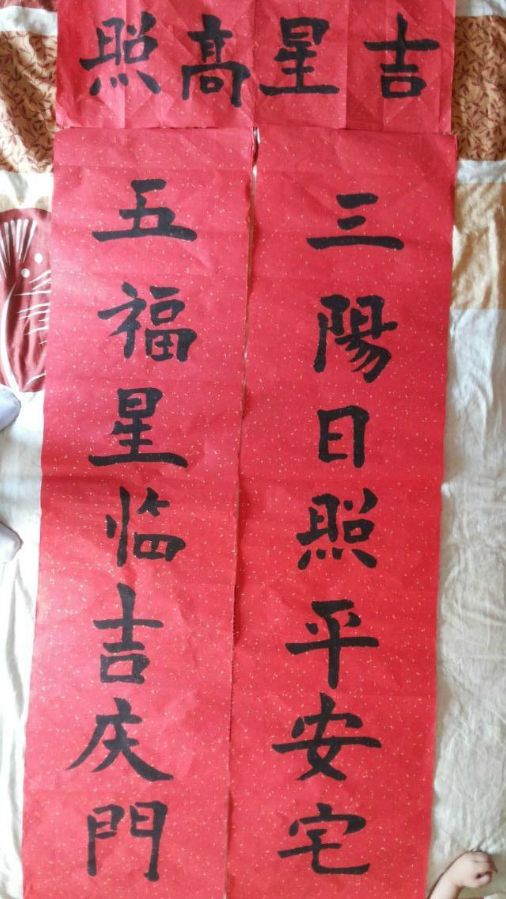 吉星高照
三陽日照平安宅
五福星临吉庆門